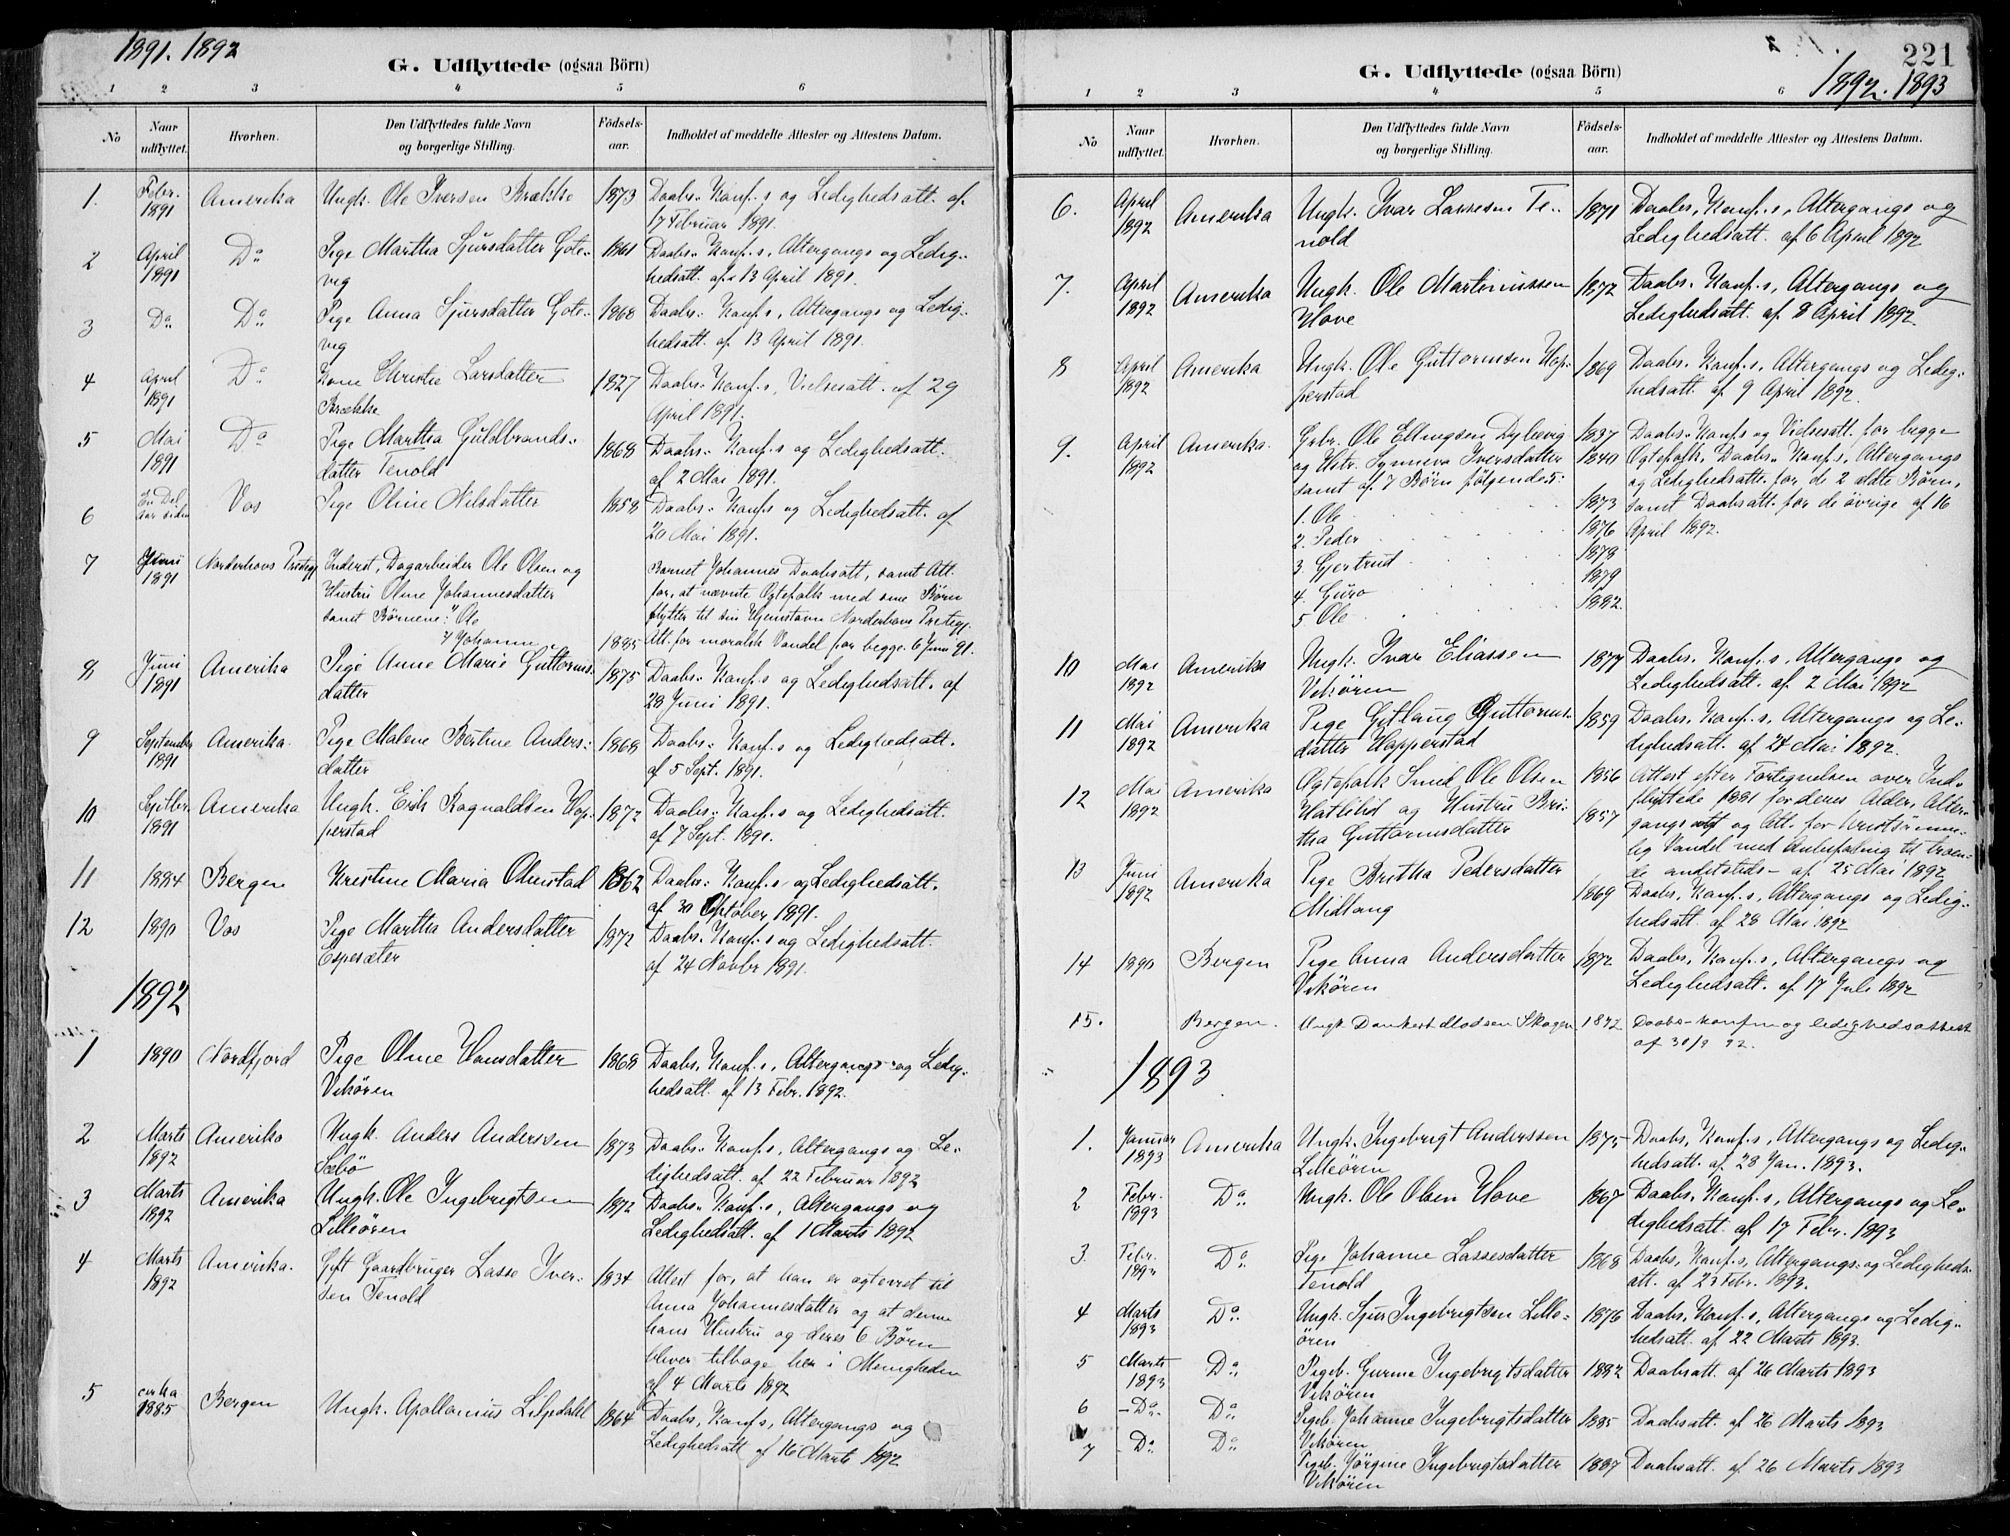 1891. 1892
G. Udflyttede (ogsaa Börn)
1 2 3 4 5 6
No
Naar udflyttet.
Hvorhen.
Den Udflyttedes fulde Navn og borgerlige Stilling.
Födsels-aar.
Indholdet af meddelte Attester og Attestens Datum.
1. Febr. 1891 Amerika Ungk. Ole Iversen Brække 1873 Daabs- Konf.s og Ledighedsatt. af
17 Februar 1891.
2 April 1891 Do Pige Martha Sjursdatter Gote- 1861 Daabs- Konf.s, Altergangs og Ledig-
veg hedsatt. af 13 April 1891.
3 Do Do Pige Anna Sjursdatter Gote- 1868 Daabs- Konf.s, Altergangs og Ledig-
veg hedsatt. af 13 April 1891.
4 April 1891 Do Kone Christie Larsdatter 1827 Daabs- Konf.s, Vielsesatt. af 29
Brække April 1891.
5 Mai 1891 Do Pige Martha Guldbrands- 1868 Daabs- Konf.s og Ledighedsatt.
datter Tenold af 2 Mai 1891.
6 En Del Aar siden Vos Pige Oline Nilsdatter 1858 Daabs- Konf.s og Ledighedsatt. af
20 Mai 1891.
7 Juni 1891 Norderhovs Prstegj. Inderst, Dagarbeider Ole Olsen og Barnet Johannes Daabsatt, samt Att.
Hustru Oline Johannesdatter for, at nævnte Ægtefolk med sine Børn
samt Børnene: 1) Ole flytter til sin Hjemstavn Norderhovs Prstegj.
2) Johannes 1885 Att. for moralsk Vandel for begge. 6 Juni 91.
8 Juni 1891 Amerika Pige Anne Marie Guttorms- 1875 Daabs- Konf.s og Ledighedsatt. af
datter 28 Juni 1891.
9 September 1891 Amerika. Pige Malene Bertine Anders- 1868 Daabs- Konf.s og Ledighedsatt.
datter af 5 Sept. 1891.
10 Septbr. 1891 Amerika Ungk. Erik Ragnaldsen Hop- 1872 Daabs- Konf.s og Ledighedsatt.
perstad af 7 Sept. 1891.
11 1884 Bergen Kristine Maria Olmstad 1862 Daabs- Konf.s og Ledighedsatt.
af 30 Oktober 1891.
12 1890 Vos Pige Martha Andersdatter 1872 Daabs- Konf.s og Ledighedsatt.
Espesæter af 24 Novbr 1891.
1892
1 1890 Nordfjord Pige Oline Hansdatter 1868 Daabs, Konf.s, Altergangs og Ledig-
Vikøren hedsatt. af 13 Febr. 1892.
2 Marts 1892 Amerika Ungk. Anders Anderssen 1873 Daabs- Konf.s, Altergangs og Le-
Sæbø dighedsatt. af 22 Februar 1892
3 Marts 1892 Amerika Ungk. Ole Ingebrigtsen 1872 Daabs- Konf.s, Altergangs og
Lilleøren Ledighedsatt. af 1 Marts 1892
4 Marts 1892 Amerika. Gift Gaardbruger Lasse Iver- 1834 Attest for, at han er ægteviet til
sen Tenold Anna Johannesdatter og at denne
hans Hustru og deres 6 Børn
bliver tilbage her i Menigheden
af 4 Marts 1892
5 cirka 1885 Bergen Ungk. Apollonius Liljedahl 1864 Daabs, Konf.s, Altergangs og
Ledighedsatt af 16 Marts 1892
221
1892. 1893
G. Udflyttede (ogsaa Börn)
1 2 3 4 5 6
No
Naar udflyttet.
Hvorhen.
Den Udflyttedes fulde Navn og borgerlige Stilling.
Födsels-aar.
Indholdet af meddelte Attester og Attestens Datum.
6. April 1892 Amerika Ungk. Ivar Lassesen Te- 1871 Daabs, Konf.s, Altergangs og
nold Ledighedsatt. af 6 April 1892
7. April 1892 Amerika Ungk. Ole Martinussen 1872 Daabs- Konf.s, Altergangs og
Hove Ledighedsatt. af 8 April 1892.
8 April 1892 Amerika Ungk. Ole Guttormsen Hop- 1869 Daabs- Konf.s, Altergangs og Ledig-
perstad hedsatt. af 9 April 1892.
9. April 1892 Amerika. Grbr. Ole Ellingsen Dybevig 1837 Daabs- Konf.s og Vielsesatt. for begge
og Hstr. Synneva Iversdatter 1840 Ægtefolk, Daabs- Konf.s, Altergangs
samt af 7 Børn følgende 5: og Ledighedsatt. for de 2 ældte Børn,
1. Ole 1873 samt Daabsatt. for de øvrige af 16
2. Peder 1876 April 1892.
3 Gjertrud 1878
4. Guro 1879
5 Ole 1882.
10 Mai 1892 Amerika Ungk. Ivar Eliassen 1877 Daabs. Konf.s, Altergangs og
Vikøren Ledighedsatt. af 2 Mai 1892
11 Mai 1892 Amerika Pige Gjetlaug Guttorms- 1859 Daabs, Konf.s, Altergangs og Le-
datter Hopperstad dighedsatt. af 24 Mai 1892.
12 Mai 1892 Amerika Ægtefolk Smed Ole Olsen 1856 Attest efter Fortegnelsen over Ind-
Hatlelid og Hustru Bri- flyttede 1881 for deres Alder, Alter-
tha Guttormsdatter 1857 gangs og Att. for kristsømme-
lig Vandel med Anbefaling til troen-
de andetsteds - af 25 Mai 1892
13 Juni 1892 Amerika Pige Britha Pedersdatter 1869 Daabs, Konf.s, Altergangs og Ledig-
Midlang hedsatt. af 28 Mai 1892
14 1890 Bergen Pige Anna Andersdatter 1872 Daabs, Konf.s, Altergangs og
Vikøren Ledighedsatt. af 17 Juli 1892
15. Bergen. Ungk Dankert Madsen Skagen 1872 Daabs- konfirm og ledighedsattest
af 30/9 92.
1893
1. Januar 1893 Amerika Ungk. Ingebrigt Anderssen 1875 Daabs, Konf.s, Altergangs og Ledig-
Lilleøren hedsatt. af 28 Jan. 1893.
2 Febr. 1893 Do Ungk. Ole Olsen Hove 1867 Daabs, Konf.s, Altergangs og Le-
dighedsatt. af 17 Febr. 1893
3. Febr. 1893 Do Pige Johanne Lassesdatter 1868 Daabs, Konf.s, Altergangs- og Ledigheds-
Tenold att. af 23 Febr. 1893.
4 Marts 1893 Do Ungk. Sjur Ingebrigtsen Lille- 1876 Daabs, Konf.s, Altergangs og Ledig-
øren hedsatt. af 22 Marts 1893.
5 Marts 1893 Do Pigeb. Gurine Ingebrigtsdatter 1882 Daabsatt. af 26 Marts 1893
Vikøren
6 - Do - Do Pigeb. Johanne Ingebrigtsdatter 1885 Daabsatt. af 26 Marts 1893
Vikøren
7 - Do Do Pigeb. Jørgine Ingebrigtsdatter 1887 Daabsatt. af 26 Marts 1893
Vikøren